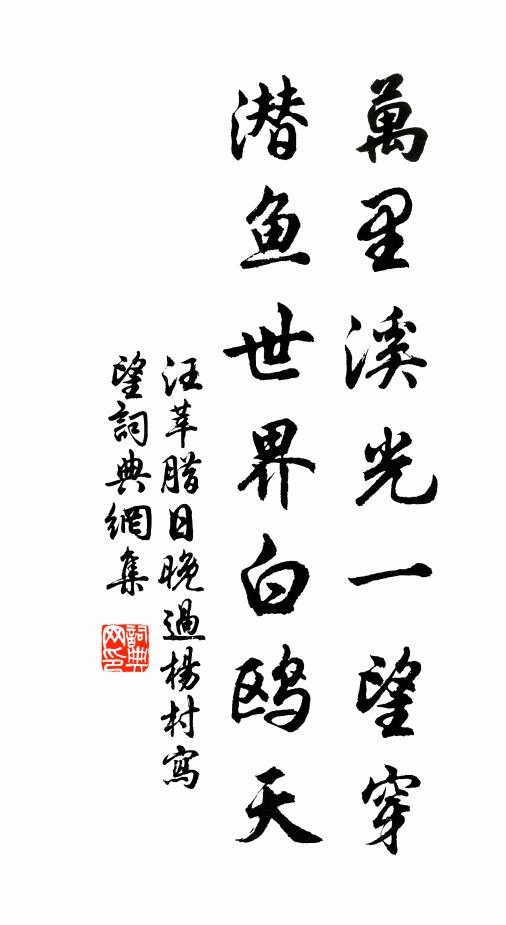 萬里溪光一望穿
潜鱼世界白鸥天
汪莘腊日晚過楊村寫
望詞典網集
詞典
网印